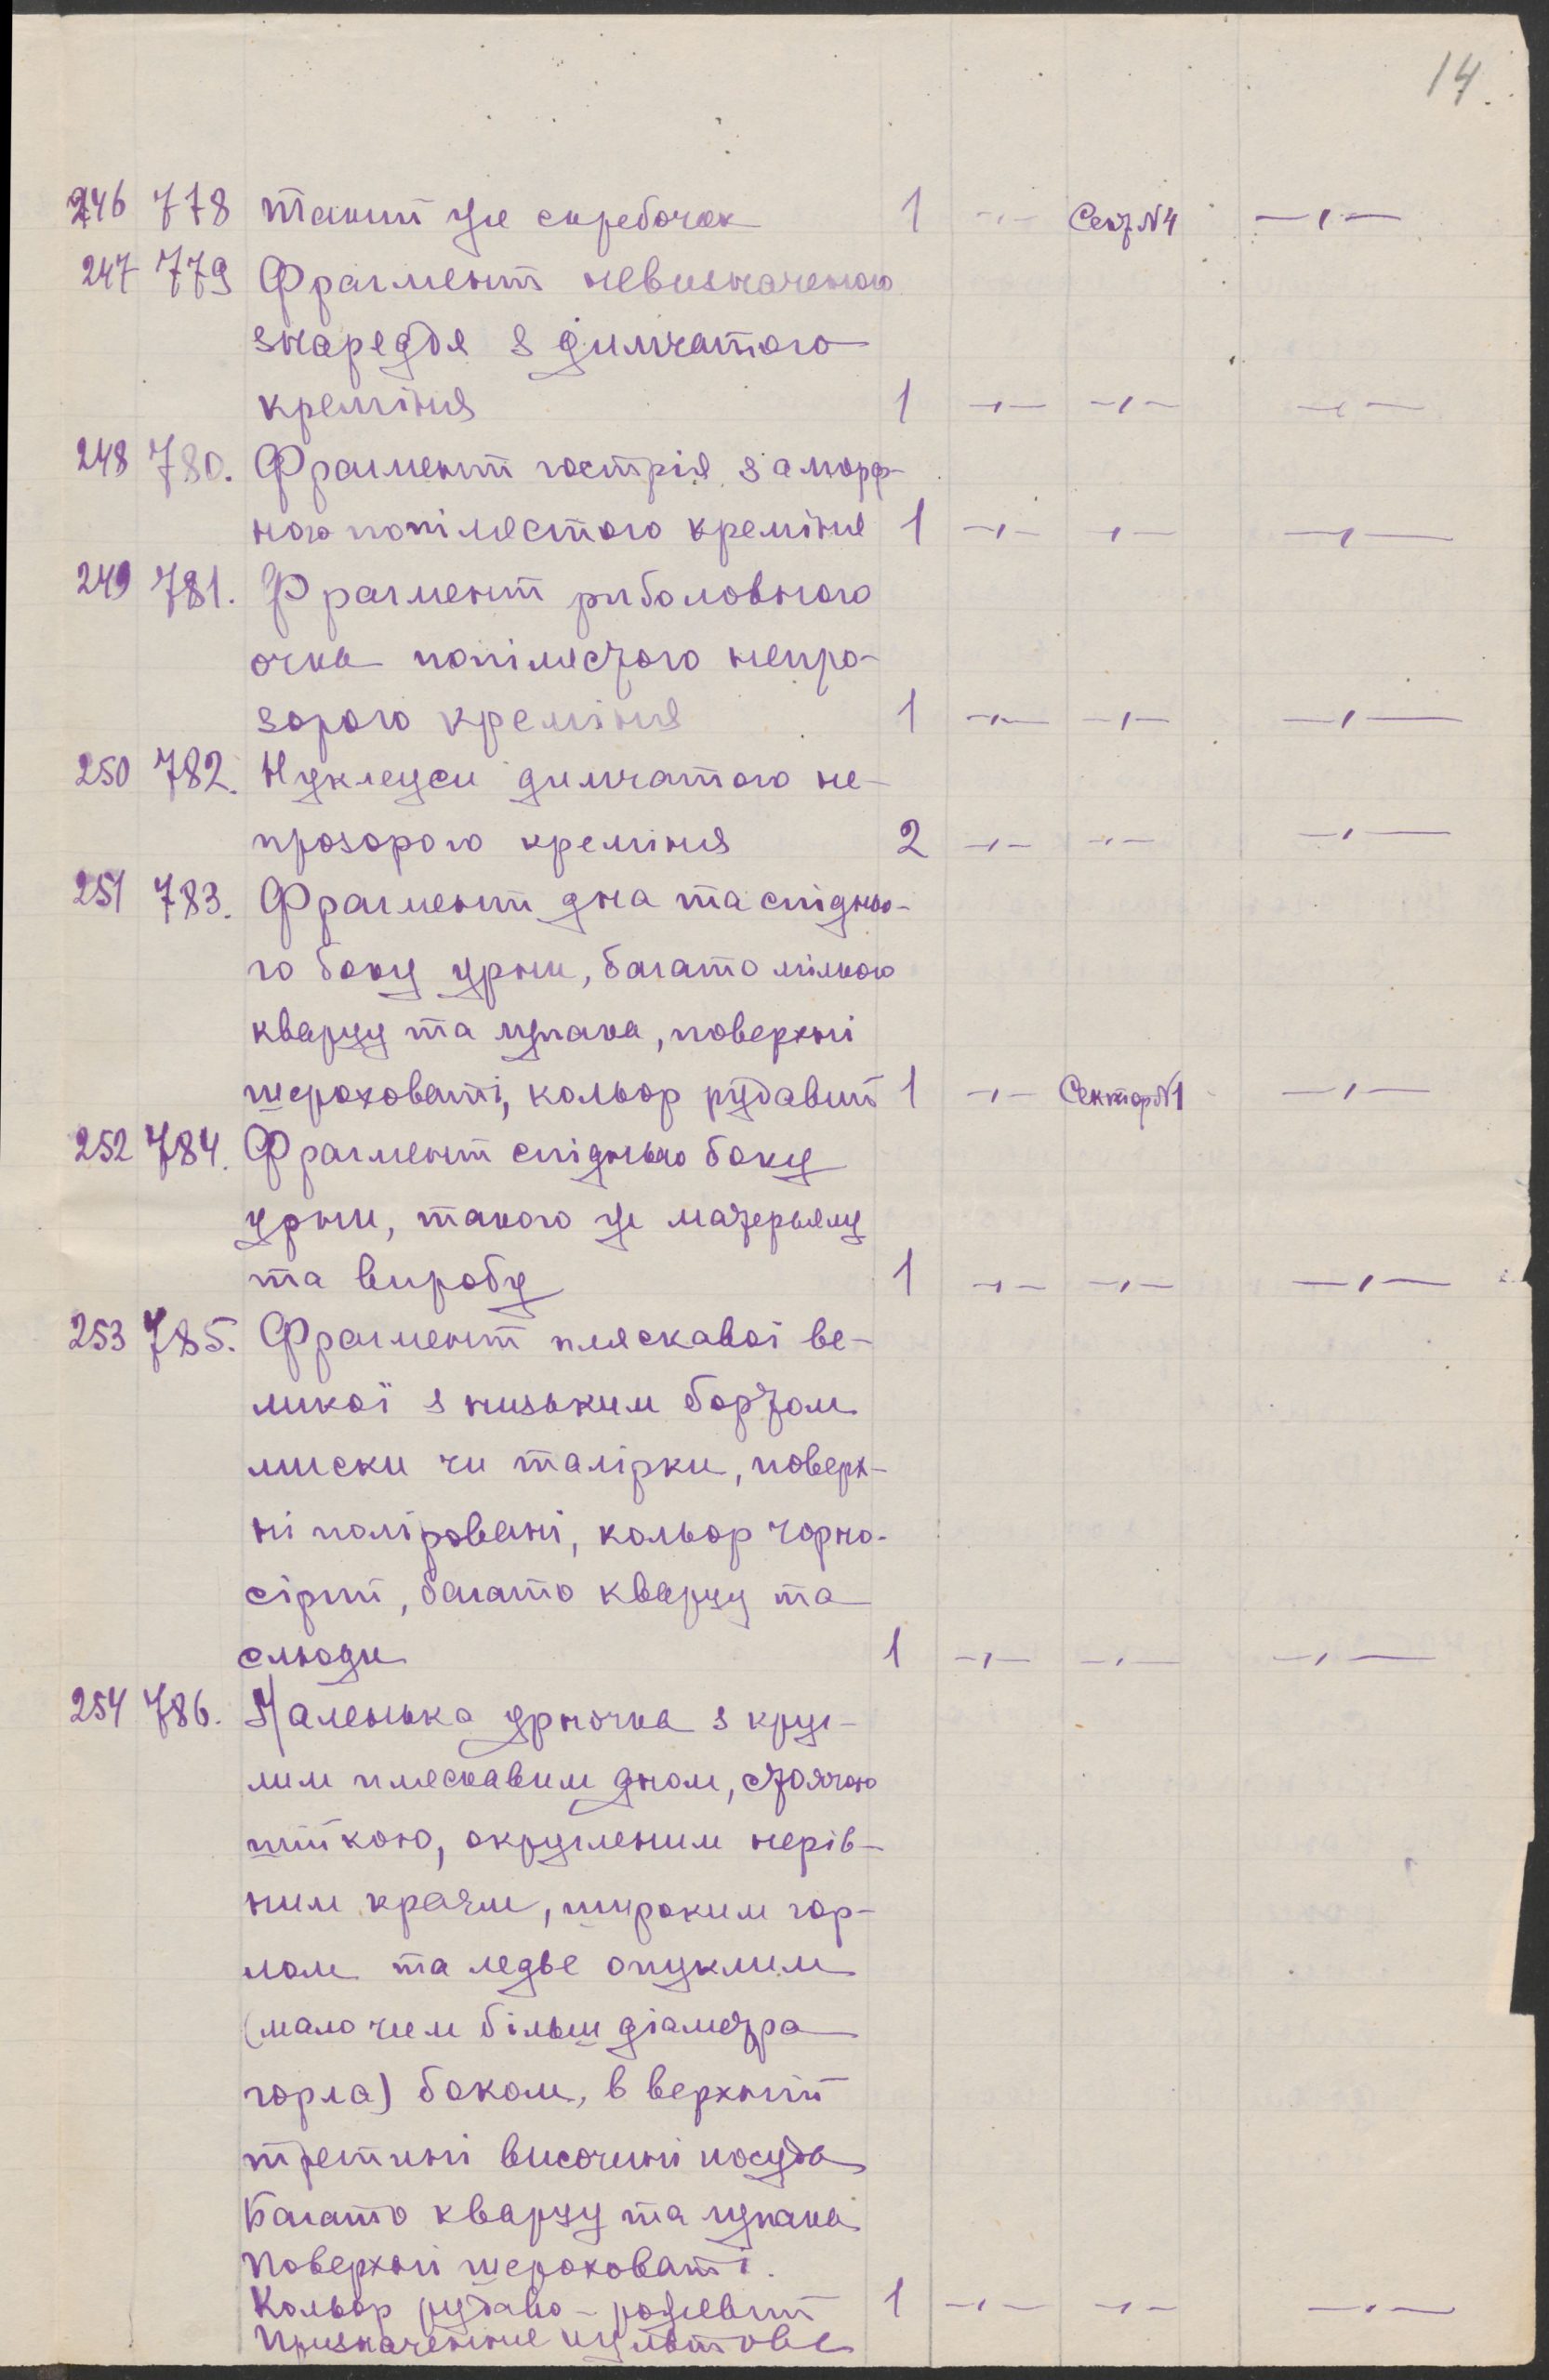 14.
246 778 Такий же скребочок 1 -"- Сект №4 -"-
247 779 Фрагмент невизначеного
знареддя з димчатого
креміня 1 -"- -"- -"-
248 780. Фрагмент гострія з аморф-
ного попілястого креміня 1 -"- -"- -"-
249 781. Фрагмент риболовного
очка попілястого непро-
зорого креміня 1 -"- -"- -"-
250 782. Нуклеуси димчатого не-
прозорого креміня 2 -"- -"- -"-
251 783. Фрагмент дна та спідньо-
го боку урни, багато мілкого
кварцу та лупака, поверхні
шероховаті, кольор рудавий 1 -"- Сектор №1 -"-
252 784. Фрагмент спіднього боку
урни, такого же матерьялу
та виробу 1 -"- -"- -"-
253 785. Фрагмент пляскавої ве-
ликої з низьким бортом
миски чи талірки, поверх-
ні поліровані, кольор чорно-
сірий, багато кварцу та
слюди 1 -"- -"- -"-
254 786. Маленька урночка з круг-
лим пляскавим дном, стоячою
шийкою, округленим нерів-
ним краєм, широким гор-
лом та ледве опуклим
(мало чим більш діаметра
горла) боком, в верхній
третині височині посуда
Багато кварцу та лупака
Поверхні шероховаті.
Кольор рудаво-рожевий 1 -"- -"- -"-
Призначенння культове